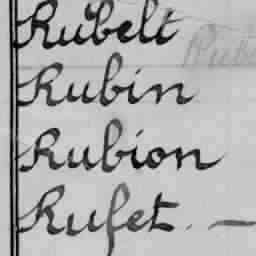 Rubelt
Rubin
Rubion
Rufet. —